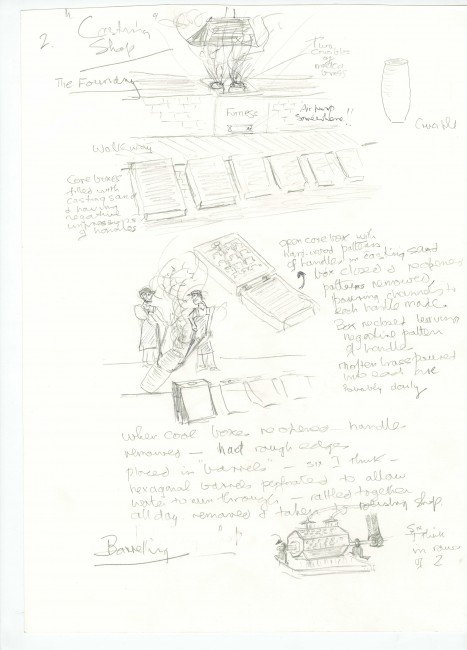 2. "Casting
Shop"
The Foundry
Two
Crucibles
of
molten
brass
Furness
Air pump
somewhere!!
Crucible
Walkway
Core boxes
filled with
casting sand
& having
negative
impressions
of handles
open core box with
hard-wood patterns
of handles in casting sand
box closed & reopened
patterns removed
pouring channels to
each handle made.
Box reclosed leaving
negative pattern
of handle
molten brass poured
into each one
When cool boxes reopened – handles
removed – had rough edges
placed in "barrels" – six I think –
hexagonal barrels perforated to allow
water to run through – rattled together
all day removed & taken to polishing shop
"Barrelling"
Six
I think
in rows
of 2